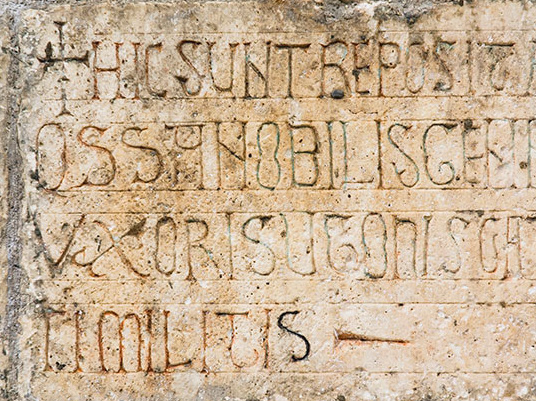 + HIC SUNT REPOSITA
OSSA NOBILIS GEN
VXORIS UGONIS GA
TI MILITIS